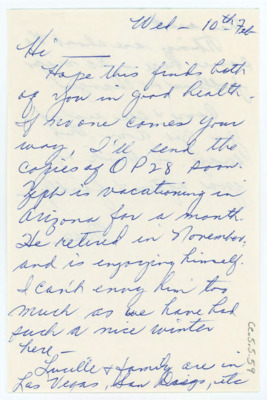 Wed - 10th Feb
Hi -
Hope this finds both
of you in good health.
If no one comes your
way, I'll send the
copies of OP 28 soon.
Zeph is vacationing in
Arizona for a month.
He retired in November,
and is enjoying himself.
I can't envy him too
much as we have had
such a nice winter
here -
Lucille & family are in
Las Vegas, San Diego, etc
Cc.5.5.59